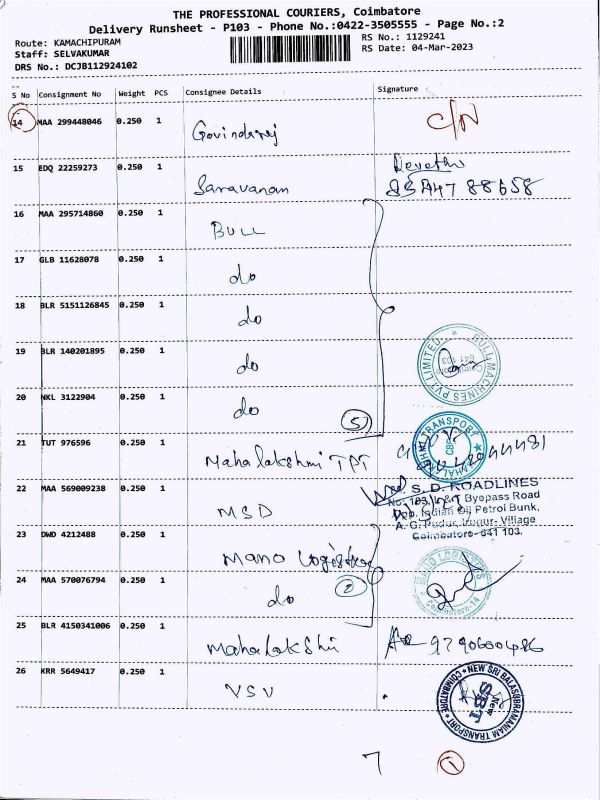 THE PROFESSIONAL COURIERS, Coimbatore
Delivery Runsheet - P103 - Phone No.:0422-3505555 - Page No.:2
Route: KAMACHIPURAM
Staff: SELVAKUMAR
DRS No.: DCJB112924102
RS No.: 1129241
RS Date: 04-Mar-2023
S No Consignment No Weight PCS Consignee Details Signature
14 MAA 299448046 0.250 1 Govindaraj C/N
15 EDQ 22259273 0.250 1 Saravanan Revathi
16 MAA 295714860 0.250 1 BULL
17 GLB 11628078 0.250 1 do
18 BLR 5151126845 0.250 1 do
19 BLR 140201895 0.250 1 do
BULL MACHINES PVT. LIMITED.
641 103
20 NKL 3122904 0.250 1 do 5
21 TUT 976596 0.250 1 Mahalakshmi TPT
MAHALAKSHMI TRANSPORT
CBE
22 MAA 569009238 0.250 1 MSD
S. D. ROADLINES
Byepass Road
Opp. Indian Oil Petrol Bunk,
A. G. Pudur, Irugur- Village
Coimbatore- 641 103.
23 DWD 4212488 0.250 1 Mano Logistics
24 MAA 570076794 0.250 1 do 2
MANO LOGISTICS
Coimbatore-14
25 BLR 4150341006 0.250 1 Mahalakshmi 9790600486
26 KRR 5649417 0.250 1 VSV
NEW SRI BALASUBRAMANIAM TRANSPORT
COIMBATORE
New
SBT
7 1